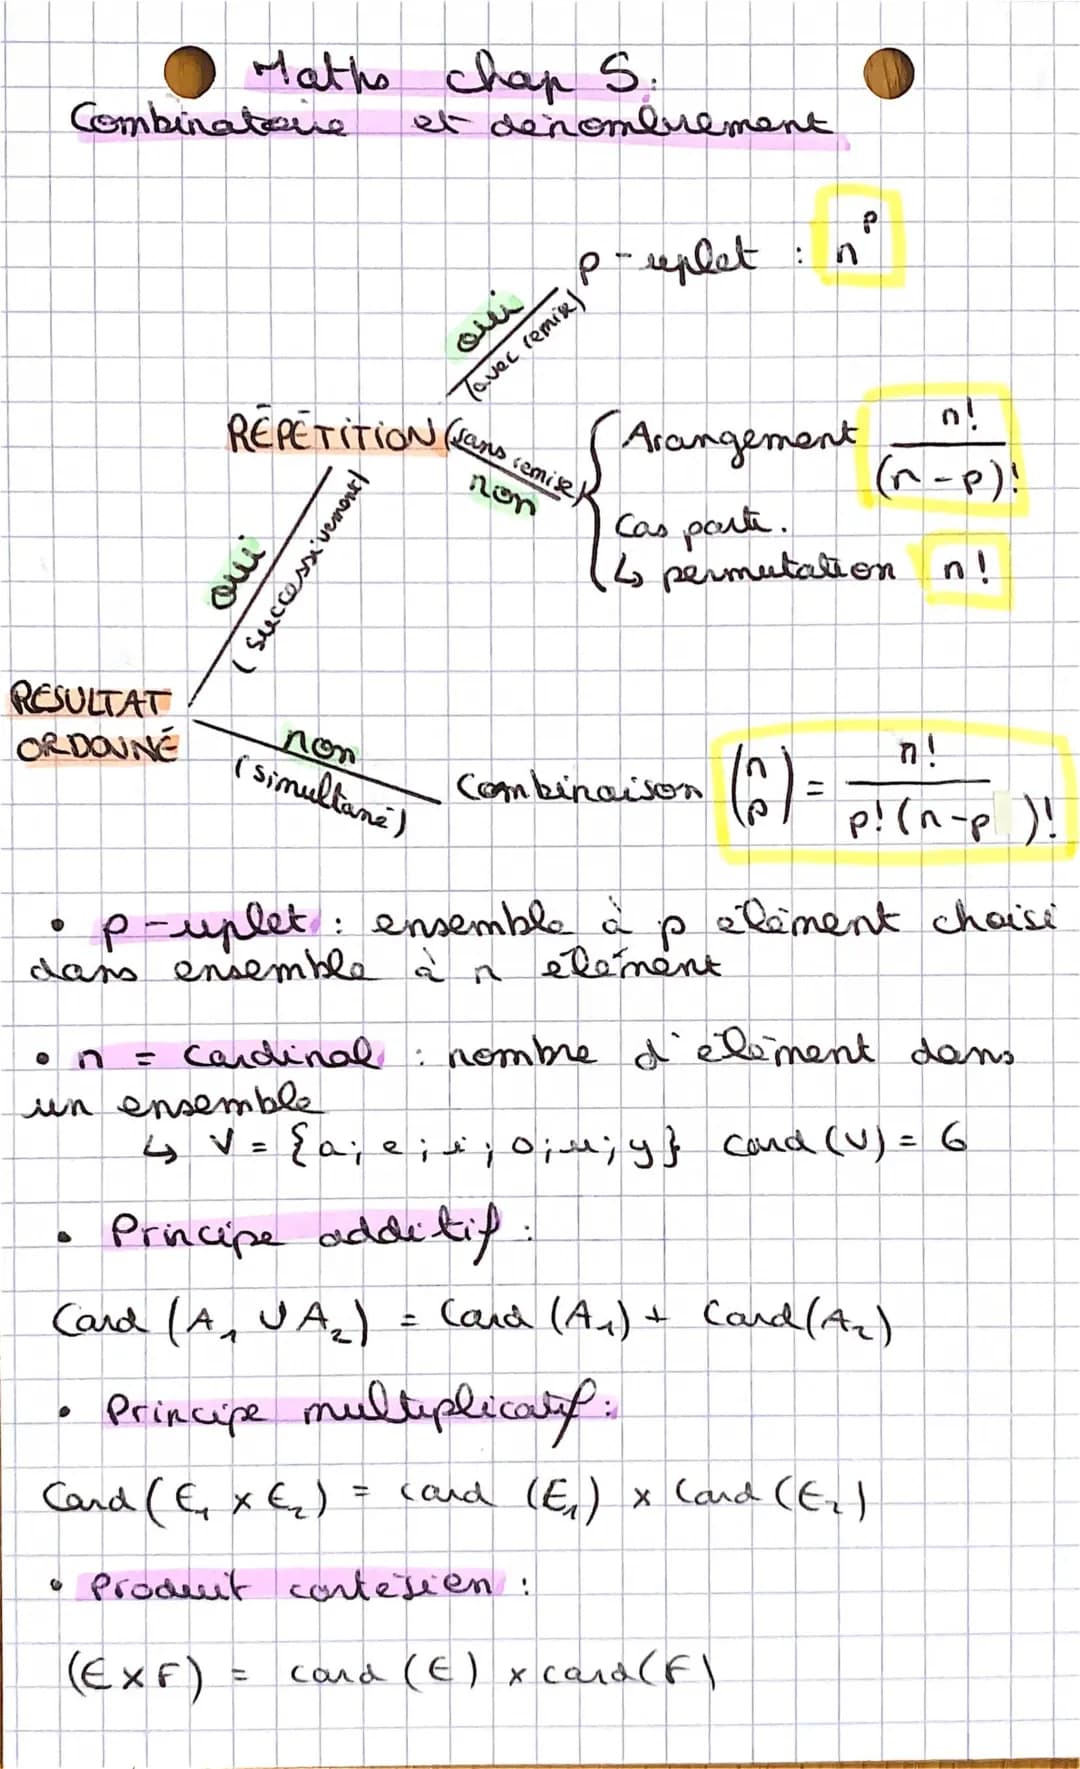 Maths chap 5:
Combinatoire et dénombrement
p-uplet : n^p
oui
(avec remise)
RÉPÉTITION
(sans remise)
non
Arangement n!/(n-p)!
Cas parti.
↳ permutation n!
oui
(successivement)
RESULTAT
ORDONNÉ
non
(simultané)
Combinaison (n p) = n!/p!(n-p)!
• p-uplet : ensemble à p élément choisi
dans ensemble à n élément
• n = cardinal : nombre d'élément dans
un ensemble
↳ V = {a; e; i; o; u; y} Card (V) = 6
• Principe additif :
Card (A₁ ∪ A₂) = Card (A₁) + Card (A₂)
• Principe multiplicatif :
Card (E₁ × E₂) = card (E₁) × Card (E₂)
• Produit cartesien :
(E×F) = card (E) × card (F)